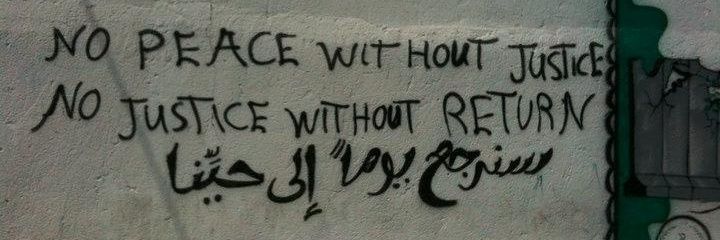 NO PEACE WITHOUT JUSTICE
NO JUSTICE WITHOUT RETURN
سنرجع يوماً إلى حيِّنا